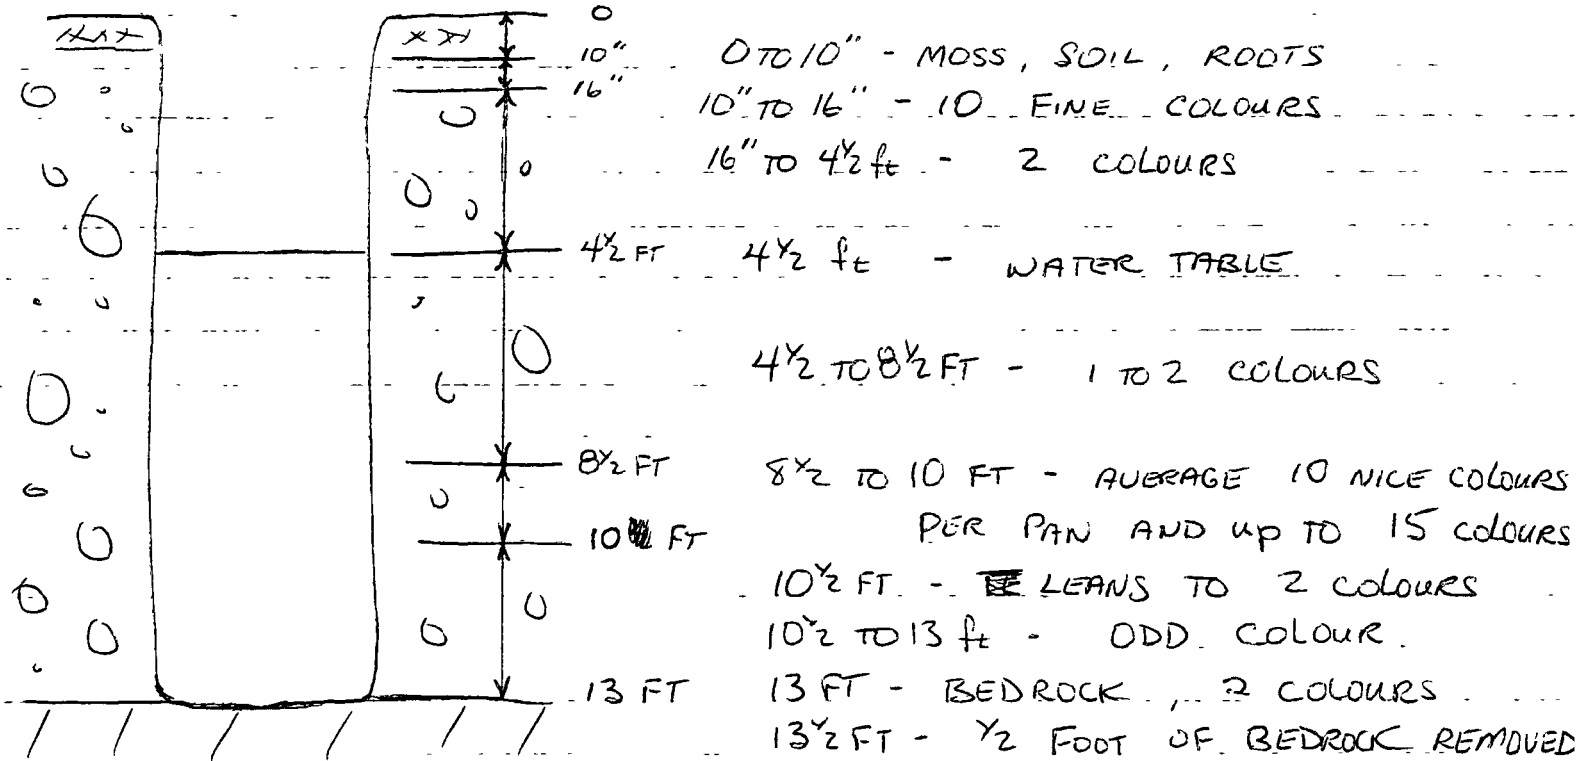 0
10" 0 TO 10" - MOSS, SOIL, ROOTS
16" 10" TO 16" - 10 FINE COLOURS
16" TO 4½ ft - 2 COLOURS
4½ FT 4½ ft - WATER TABLE
4½ TO 8½ FT - 1 TO 2 COLOURS
8½ FT 8½ TO 10 FT - AVERAGE 10 NICE COLOURS
10 FT PER PAN AND up TO 15 COLOURS
10½ FT. - LEANS TO 2 COLOURS
10½ TO 13 ft - ODD COLOUR.
13 FT 13 FT - BEDROCK, 2 COLOURS
13½ FT - ½ FOOT OF BEDROCK REMOVED